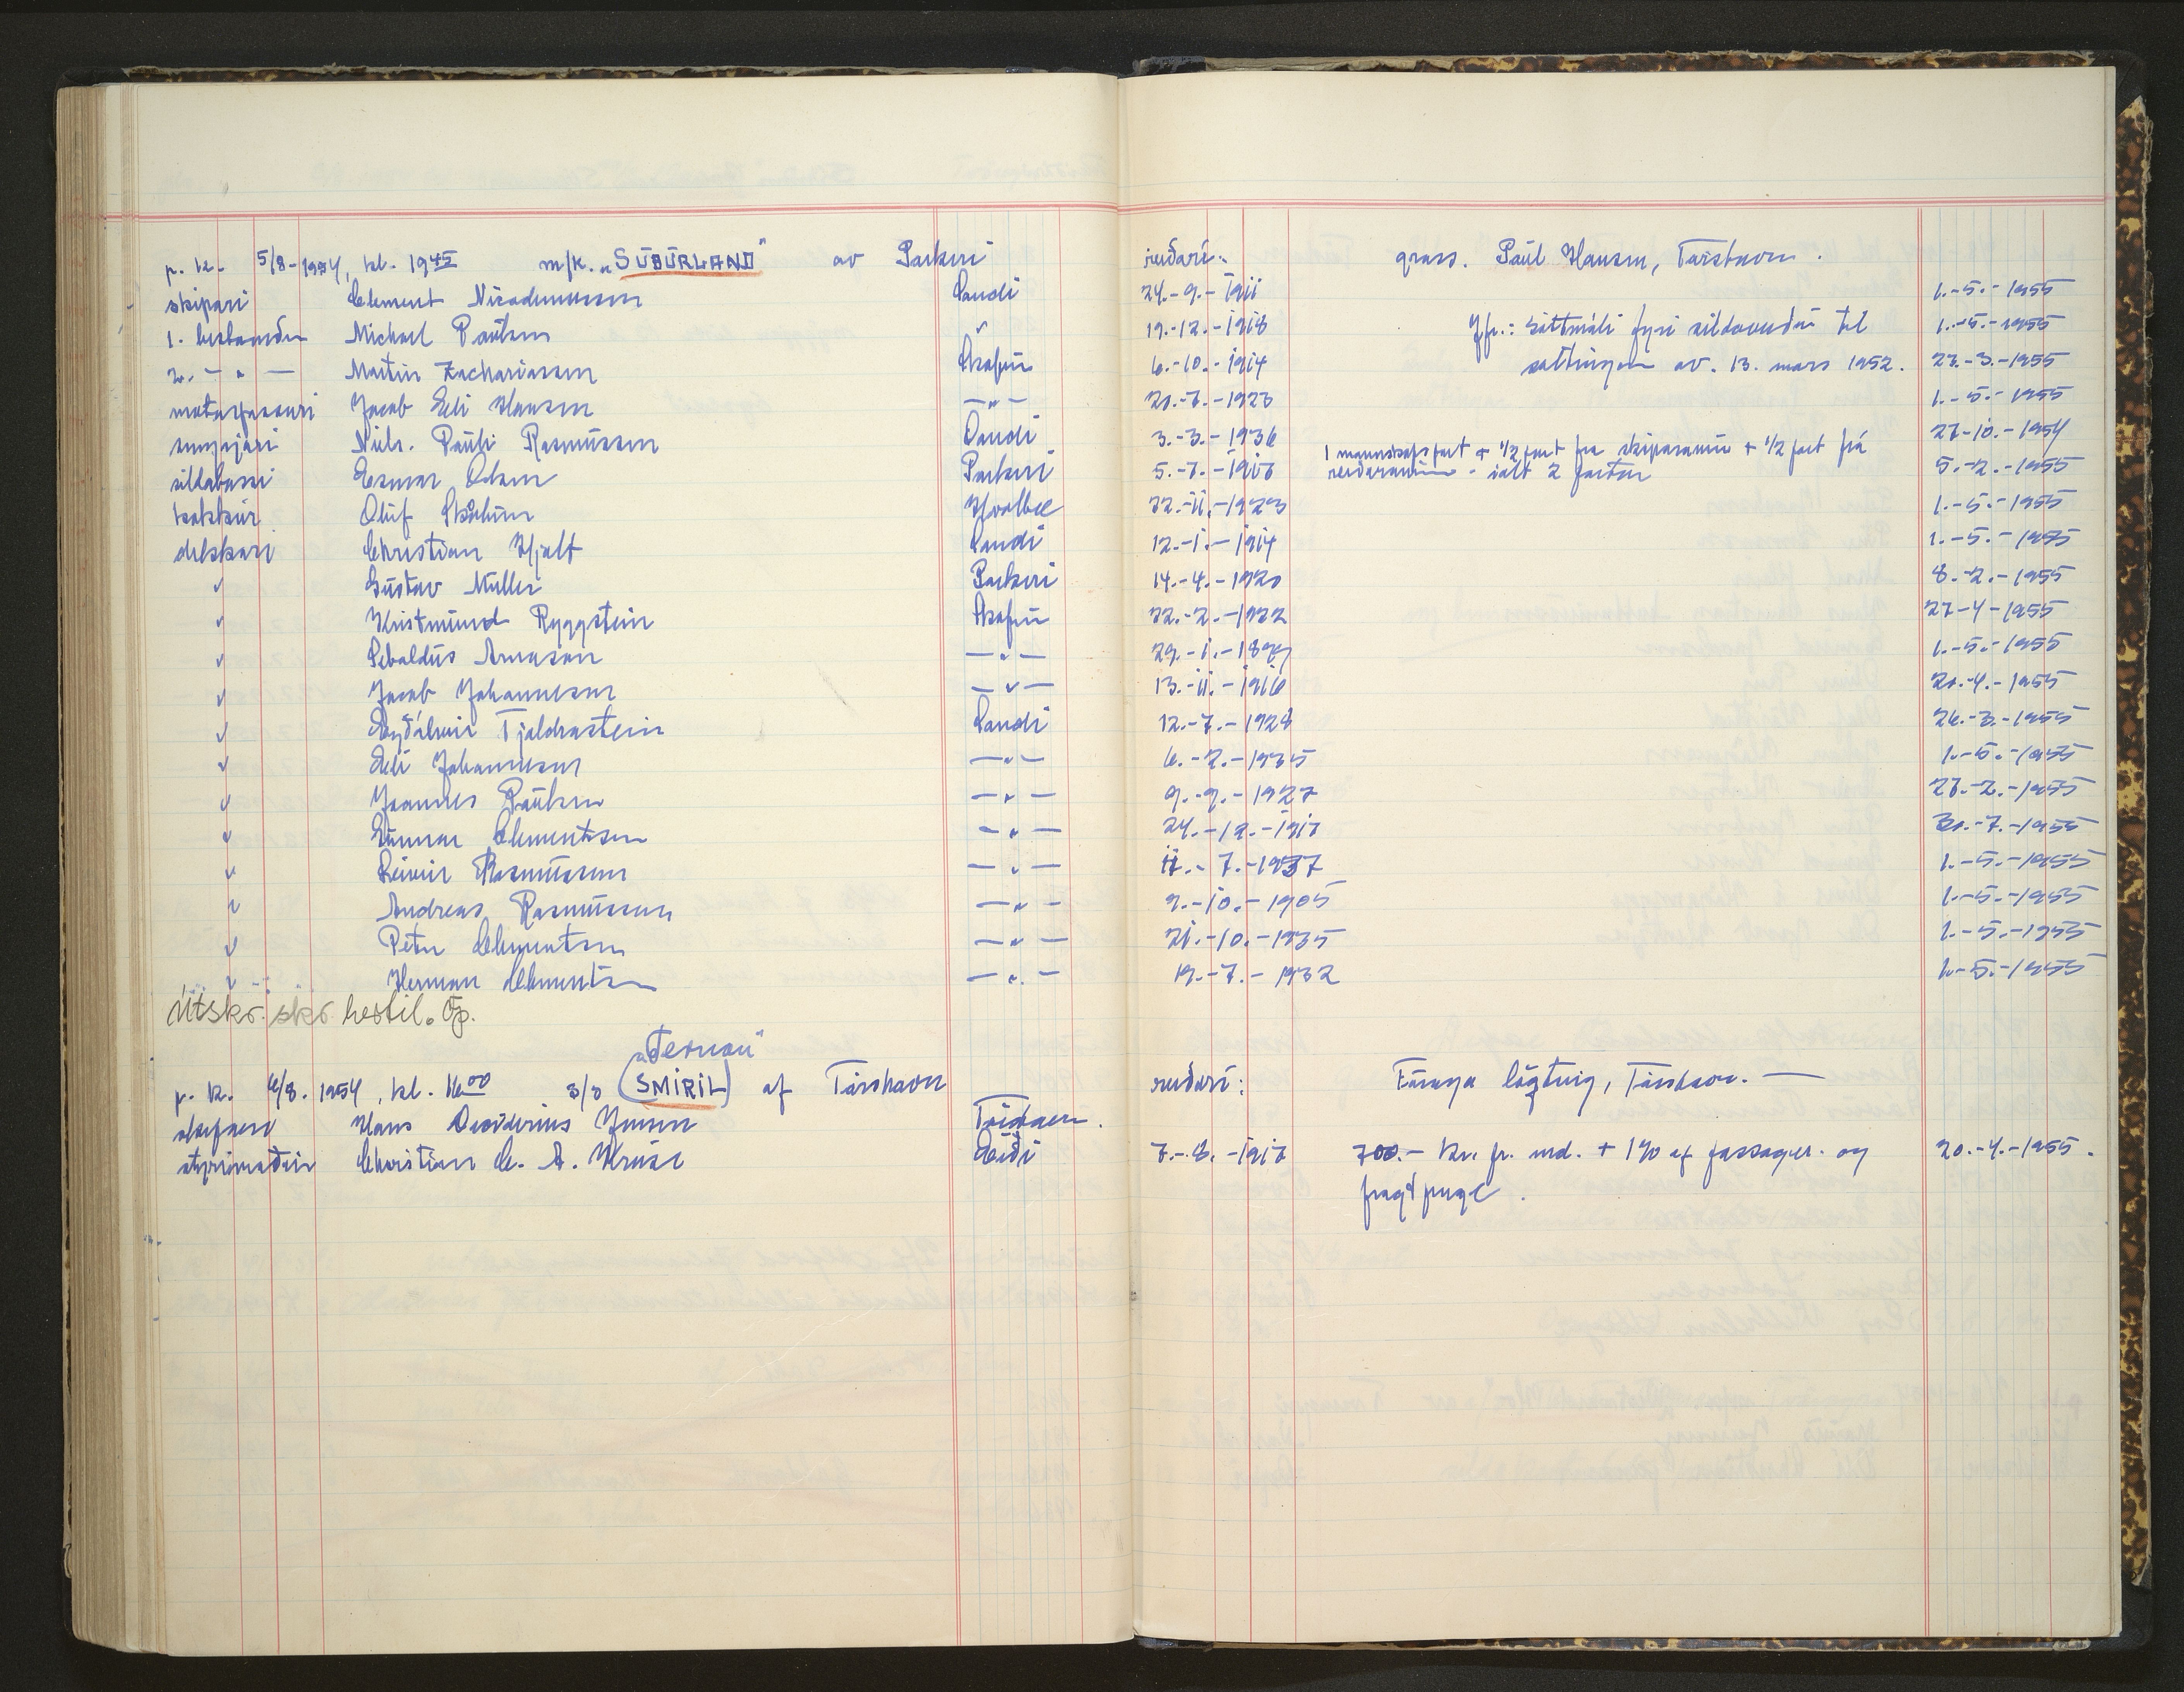 p. k. 5/8-1954, kl. 19<u>45</u> m/k. „SUÐURLAND" av Porkeri reiðari: grass. Paul Hansen, Tórshavn.
skipari Clement Nicodemussen Sandi 24.-9.-1911 1.-5.-1955
1. bestamaðr Michael Paulsen " 19.-12.-1918 Jfr.: Sáttmáli fyri sildaveiði til 1.-5.-1955
2. - " - Martin Zachariassen Skopun 6.-10.-1914 saltingar av. 13. mars 1952. 23.-3.-1955
motorpassari Jacob Eli Hansen - " - 20.-7.-1923 1.-5.-1955
Niels. Pauli Rasmussen Sandi 3.-3.-1936 27-10.-1954
sildabassi Esmar Olsen Porkeri 5.-7.- 1 mannskapspart + 1/2 part fra skiparanum + 1/2 part frá 5.-2.-1955
reiðaranum - ialt 2 partar
kokkur Oluf Skaalum Hvalbø 22.-11.-1923 1.-5.-1955
dekkari Christian Hjalt Sandi 12.-1.-1914 1.-5.-1955
" Gustav Müller Porkeri 14.-4.-1920 8.-2.-1955
" Kristmund Ryggstein Skopun 22.-2.-1922 27-4-1955
" Sebaldus Arnason - " - 29.-1.-1897 1.-5.-1955
" Jacob Johannesen - " - 13.-11.-1916 20.-4.-1955
" Eyðálvur Tjaldrastein Sandi 12.-7.-1928 26.-3.-1955
" Eli Johannesen - " - 6.-2.-1935 1.-5.-1955
" Joannes Paulsen - " - 9.-9.-1927 27.-2.-1955
" Gunnar Clementsen - " - 24.-12.- 30.-7.-1955
" Reinir Rasmussen - " - 11.-7.-1937 1.-5.-1955
" Andreas Rasmussen - " - 9.-10.-1905 1.-5.-1955
" Petur Clementsen - " - 21.-10.-1935 1.-5.-1955
" Herman Clementsen - " - 19.-7.-1932 1.-5.-1955
Útskr. skr. hestil. Op.
„Ternan"
p. k. 6/8. 1954, kl. 16<u>00</u> s/s (SMIRIL) af Tórshavn reiðari: Føroya løgting, Tórshavn. —
skipari Hans Desiderius Jensen Tórshavn.
stýrimaður Christian C. A. Kruse Eiði 7.-8.- 700.- kr. pr. md. + 1% af passager- og 20.-4.-1955.
fragtpenge.